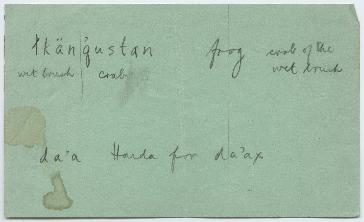 łkän qustan frog crab of the
wet brush crab wet brush
da'a Haida for da'ax